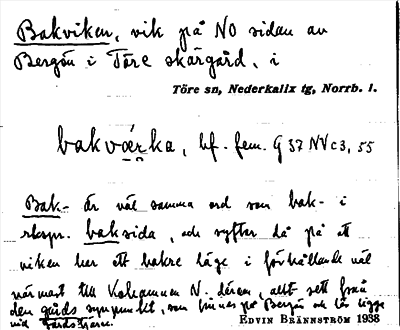 Bakviken, vik på NO sidan av
Bergön i Töre skärgård, i
Töre sn, Nederkalix tg, Norrb. l.
bakvæ̀rka, bf. fem. G 37 NV c3, 55
Bak- är väl samma ord som bak- i
rikspr. baksida, och syftar då på att
viken har ett bakre läge i förhållande väl
närmast till Kohamnen N. därom, allt sett från
den gårds synpunkt, som finnes på Bergön och lär ligga
vid
EDVIN BRÄNNSTRÖM 1938